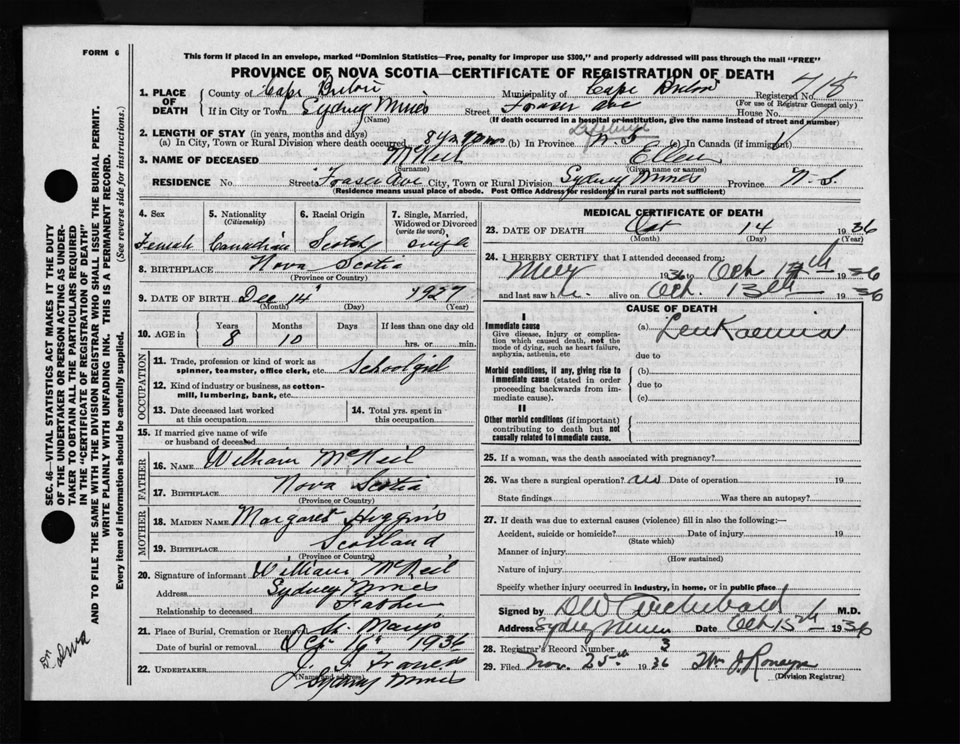 FORM 6
This form if placed in an envelope, marked "Dominion Statistics—Free, penalty for improper use $300," and properly addressed will pass through the mail "FREE"
PROVINCE OF NOVA SCOTIA—CERTIFICATE OF REGISTRATION OF DEATH
1. PLACE OF DEATH
County of Cape Breton Municipality of Cape Breton Registered No. 718
(For use of Registrar General only)
If in City or Town Sydney Mines Street Fraser Ave House No.
(Name) (If death occurred in a hospital or institution, give the name instead of street and number)
2. LENGTH OF STAY (in years, months and days)
(a) In City, Town or Rural Division where death occurred (b) In Province (c) In Canada (if immigrant)
3. NAME OF DECEASED McNeil Ellen
(Surname) (Given name or names)
RESIDENCE No. Street Fraser Ave City, Town or Rural Division Sydney Mines Province N.S.
(Residence means usual place of abode. Post Office Address for residents in rural parts not sufficient)
4. Sex 5. Nationality (Citizenship) 6. Racial Origin 7. Single, Married, Widowed or Divorced (write the word)
Female Canadian Scotch single
8. BIRTHPLACE Nova Scotia
(Province or Country)
9. DATE OF BIRTH Dec 14 1927
(Month) (Day) (Year)
10. AGE in Years Months Days If less than one day old
8 10 hrs. or min.
OCCUPATION
11. Trade, profession or kind of work as spinner, teamster, office clerk, etc. Schoolgirl
12. Kind of industry or business, as cotton-mill, lumbering, bank, etc.
13. Date deceased last worked at this occupation
14. Total yrs. spent in this occupation
15. If married give name of wife or husband of deceased
FATHER
16. NAME William McNeil
17. BIRTHPLACE Nova Scotia
(Province or Country)
MOTHER
18. MAIDEN NAME Margaret Higgins
19. BIRTHPLACE Scotland
(Province or Country)
20. Signature of informant William McNeil
Address Sydney Mines
Relationship to deceased Father
21. Place of Burial, Cremation or Removal St. Marys
Date of burial or removal Oct 16 1936
22. UNDERTAKER Francis
(Name and address) Sydney Mines
MEDICAL CERTIFICATE OF DEATH
23. DATE OF DEATH Oct 14 1936
(Month) (Day) (Year)
24. I HEREBY CERTIFY that I attended deceased from:
1936 to Oct 1936
and last saw h alive on Oct. 13th 1936
CAUSE OF DEATH
I
Immediate cause
Give disease, injury or complication which caused death, not the mode of dying, such as heart failure, asphyxia, asthenia, etc
(a) Leukaemia
due to
Morbid conditions, if any, giving rise to immediate cause (stated in order proceeding backwards from immediate cause).
(b)
due to
(c)
II
Other morbid conditions (if important) contributing to death but not causally related to immediate cause.
25. If a woman, was the death associated with pregnancy?
26. Was there a surgical operation? no Date of operation 19
State findings Was there an autopsy?
27. If death was due to external causes (violence) fill in also the following:—
Accident, suicide or homicide? Date of injury 19
(State which)
Manner of injury
(How sustained)
Nature of injury
Specify whether injury occurred in industry, in home, or in public place
Signed by DW Archibald M.D.
Address Sydney Mines Date Oct 15th 1936
28. Registrar's Record Number 3
29. Filed Nov. 25th 1936 Wm J. Ronayne
(Division Registrar)
SEC. 46—VITAL STATISTICS ACT MAKES IT THE DUTY
OF THE UNDERTAKER OR PERSON ACTING AS UNDER-
TAKER TO OBTAIN ALL THE PARTICULARS REQUIRED
IN THE "CERTIFICATE OF REGISTRATION OF DEATH"
AND TO FILE THE SAME WITH THE DIVISION REGISTRAR WHO SHALL ISSUE THE BURIAL PERMIT.
WRITE PLAINLY WITH UNFADING INK. THIS IS A PERMANENT RECORD.
Every item of information should be carefully supplied. (See reverse side for instructions.)